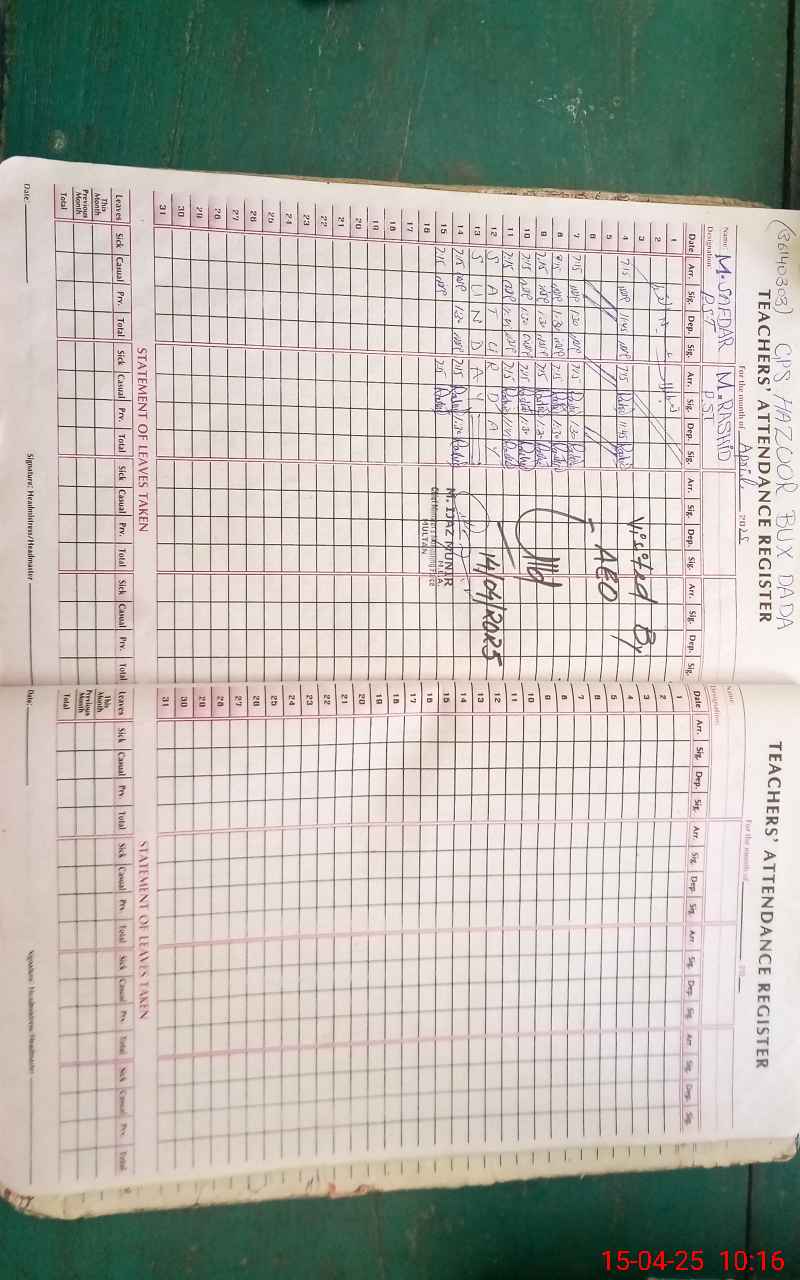 (36140303) GPS HAZOOR BUX DADA
TEACHERS' ATTENDANCE REGISTER
For the month of April 2025
Name: M. SAFDAR M. RASHID
Designation: PST PST
Date Arr. Sig. Dep. Sig. Arr. Sig. Dep. Sig. Arr. Sig. Dep. Sig. Arr. Sig. Dep. Sig.
1
2
3
4 7:15 11:45 7:15 11:45
5
6
7 7:15 1:30 7:15 1:30
8 7:15 1:30 7:15 1:30
9 7:15 1:30 7:15 1:30
10 7:15 1:30 7:15 1:30
11 7:15 11:45 7:15 11:45
12 S A T U R D A Y
13 S U N D A Y
14 7:15 1:30 7:15 1:30
15 7:15 7:15
16
17
18
19
20
21
22
23
24
25
26
27
28
29
30
31
Visited By
AEO
14/04/2025
M. IJAZ MUNIR
M.E.A
MULTAN
STATEMENT OF LEAVES TAKEN
Leaves Sick Casual Prv. Total Sick Casual Prv. Total Sick Casual Prv. Total Sick Casual Prv. Total
This Month
Previous Month
Total
Date: Signature: Headmistress/Headmaster
TEACHERS' ATTENDANCE REGISTER
For the month of 20
Name:
Designation:
Date Arr. Sig. Dep. Sig. Arr. Sig. Dep. Sig. Arr. Sig. Dep. Sig. Arr. Sig. Dep. Sig.
1
2
3
4
5
6
7
8
9
10
11
12
13
14
15
16
17
18
19
20
21
22
23
24
25
26
27
28
29
30
31
STATEMENT OF LEAVES TAKEN
Leaves Sick Casual Prv. Total Sick Casual Prv. Total Sick Casual Prv. Total Sick Casual Prv. Total
This Month
Previous Month
Total
Date: Signature: Headmistress/Headmaster
15-04-25 10:16